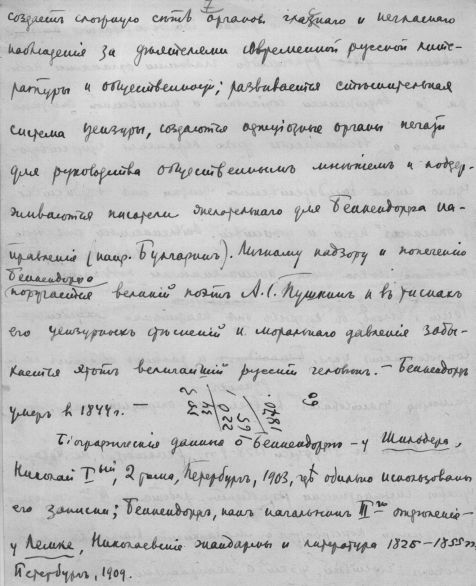 7
создаетъ сложную сѣть органовъ гласнаго и негласнаго
наблюденія за дѣятелями современной русской лите-
ратуры и общественности; развивается стѣснительная
система цензуры, создаются оффиціозные органы печати
для руководства общественнымъ мнѣніемъ и поддер-
живаются писатели желательнаго для Бенкендорфа на-
правленія (напр. Булгаринъ). Личному надзору и попеченію
Бенкендорфа
поручается великій поэтъ А. С. Пушкинъ и въ тискахъ
его цензурныхъ стѣсненій и моральнаго давленія
этотъ величайшій русскій человѣкъ. — Бенкендорфъ
умеръ въ 1844 г. —
Біографическія данныя о Бенкендорфѣ — у Шильдера,
Николай Iый, 2 тома, Петербургъ, 1903, гдѣ обильно использованы
его записки; Бенкендорфъ, какъ начальникъ IIIго отдѣленія —
у Лемке, Николаевскіе жандармы и литература 1826–1855 гг.
Петербургъ, 1909.